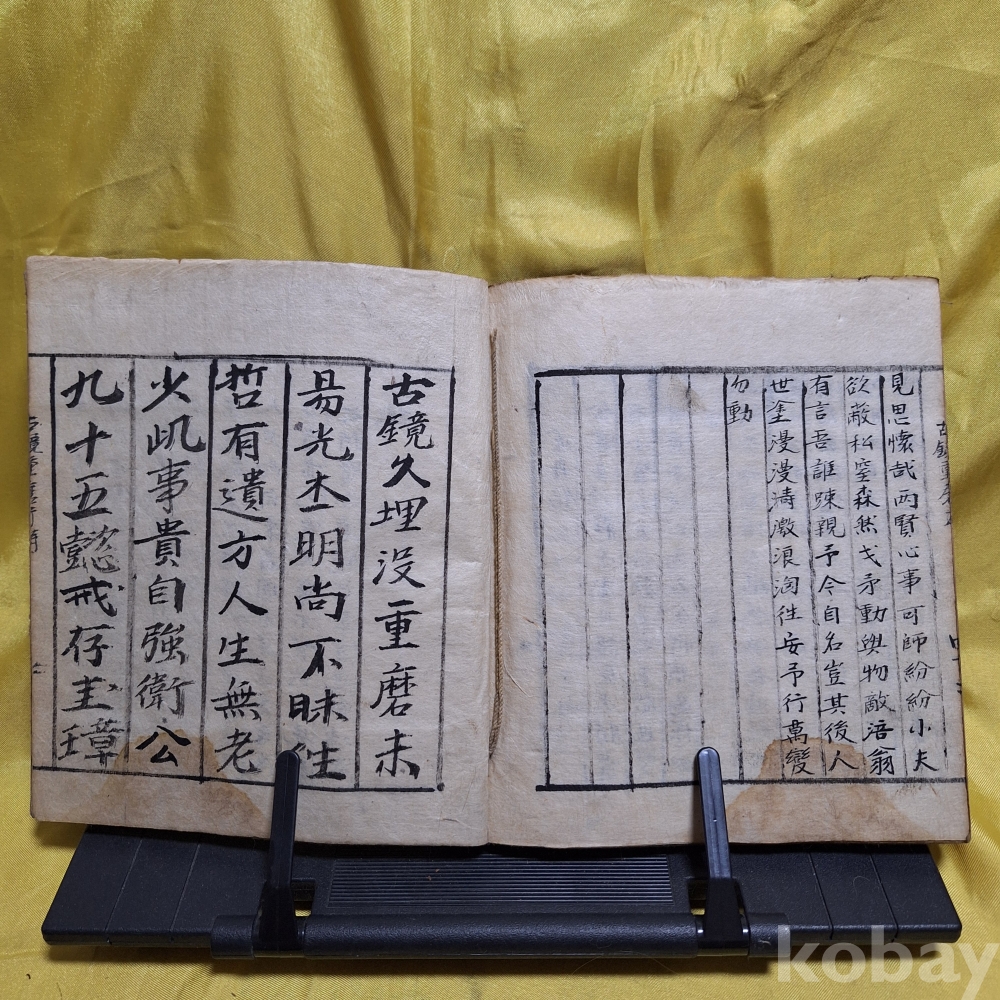 見思懷哉两賢心事可師紛紛小夫
欲蔽私窒森然戈矛動輿物敵浯翁
有言吾誰踈親予今自名豈其後人
世塗漫漫濤激浪淘徃安予行萬變
勿動
古鏡久埋没重磨未
易光本明尚不昧徃
哲有遺方人生無老
少此事貴自強衛公
九十五懿戒存圭璋
kobay